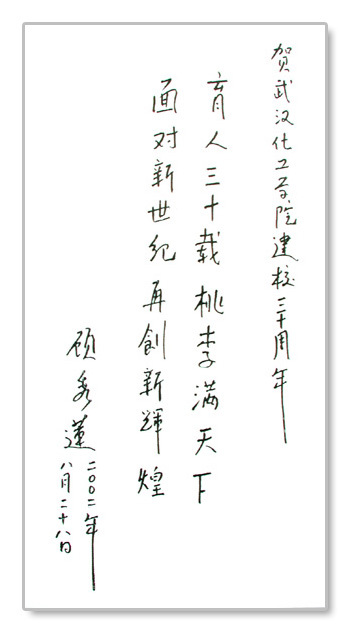 贺武汉化工学院建校三十周年
育人三十载桃李满天下
面对新世纪再创新辉煌
顾秀莲
二〇〇二年
八月二十八日